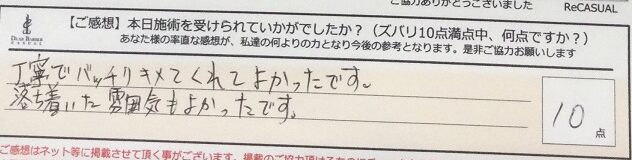 ご協力ありがとうございました　ReCASUAL
DEAR BARBER
CASUAL
【ご感想】本日施術を受けられていかがでしたか？（ズバリ10点満点中、何点ですか？）
あなた様の率直な感想が、私達の何よりの力となり今後の参考となります。是非ご協力お願いします
丁寧でバッチリキメてくれてよかったです。
落ち着いた雰囲気もよかったです。
10点
ご感想はネット等に掲載させて頂く事がございます。